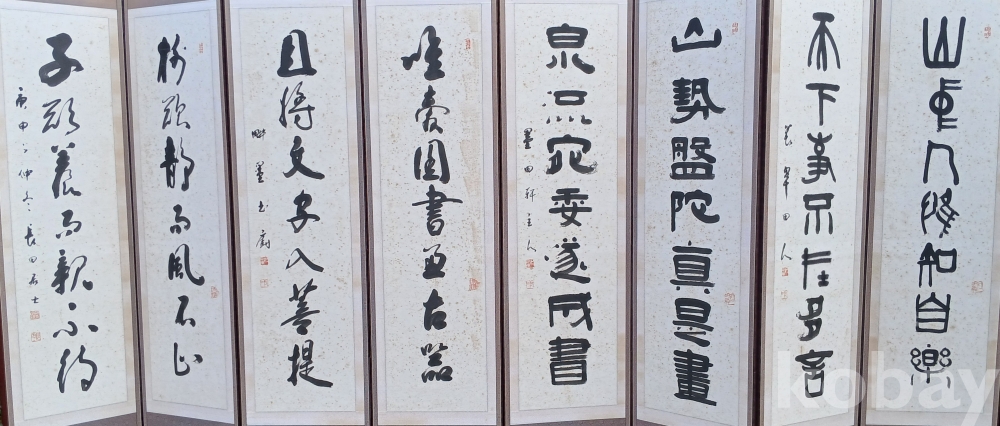 山人知自樂
天下事不在多言
山勢盤陀真是畫
泉流宛委遂成書
墨田軒主人
唯愛圖書兼古器
且將文字入菩提
樹欲靜而風不止
子欲養而親不待
庚申之仲冬 長田居士
kobay